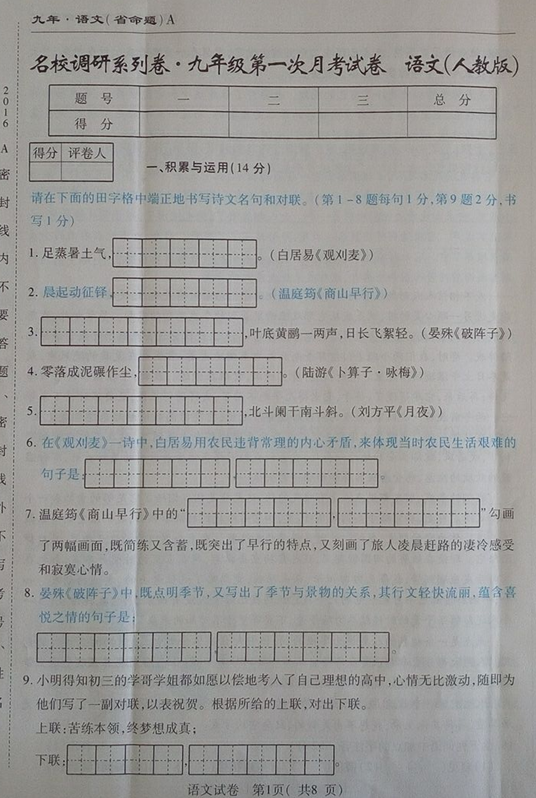 九年·语文(省命题)A
名校调研系列卷·九年级第一次月考试卷 语文(人教版)
题 号 一 二 三 总 分
得 分
得分 评卷人
一、积累与运用(14分)
请在下面的田字格中端正地书写诗文名句和对联。(第1-8题每句1分,第9题2分,书
写1分)
1. 足蒸暑土气, 。(白居易《观刈麦》)
2. 晨起动征铎, 。(温庭筠《商山早行》)
3. ,叶底黄鹂一两声,日长飞絮轻。(晏殊《破阵子》)
4. 零落成泥碾作尘, 。(陆游《卜算子·咏梅》)
5. ,北斗阑干南斗斜。(刘方平《月夜》)
6. 在《观刈麦》一诗中,白居易用农民违背常理的内心矛盾,来体现当时农民生活艰难的
句子是: , 。
7. 温庭筠《商山早行》中的“ , ”勾画
了两幅画面,既简练又含蓄,既突出了早行的特点,又刻画了旅人凌晨赶路的凄冷感受
和寂寞心情。
8. 晏殊《破阵子》中,既点明季节,又写出了季节与景物的关系,其行文轻快流丽,蕴含喜
悦之情的句子是:
, 。
9. 小明得知初三的学哥学姐都如愿以偿地考入了自己理想的高中,心情无比激动,随即为
他们写了一副对联,以表祝贺。根据所给的上联,对出下联。
上联:苦练本领,终梦想成真;
下联: , 。
语文试卷 第1页(共8页)
2016A 密封线内不要答题、密封线外不写考号、姓名